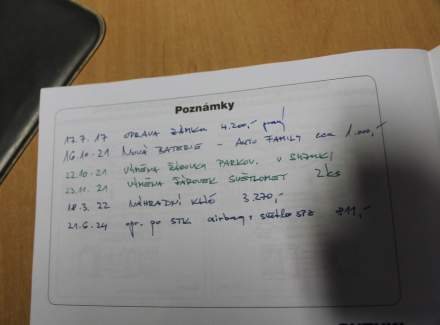 Poznámky
17.7.17 OPRAVA ZÁMKU 4.200,-
16.10.21 NOVÁ BATERIE - AUTO FAMILY 1.000,-
22.10.21 VÝMĚNA ŽÁROVKY PARKOV. V
23.11.21 VÝMĚNA ŽÁROVEK SVĚTLOMET 2 ks
18.3.22 NÁHRADNÍ KLÍČ 3.270,-
21.6.24 opr. po STK airbag, světlo SPZ 911,-